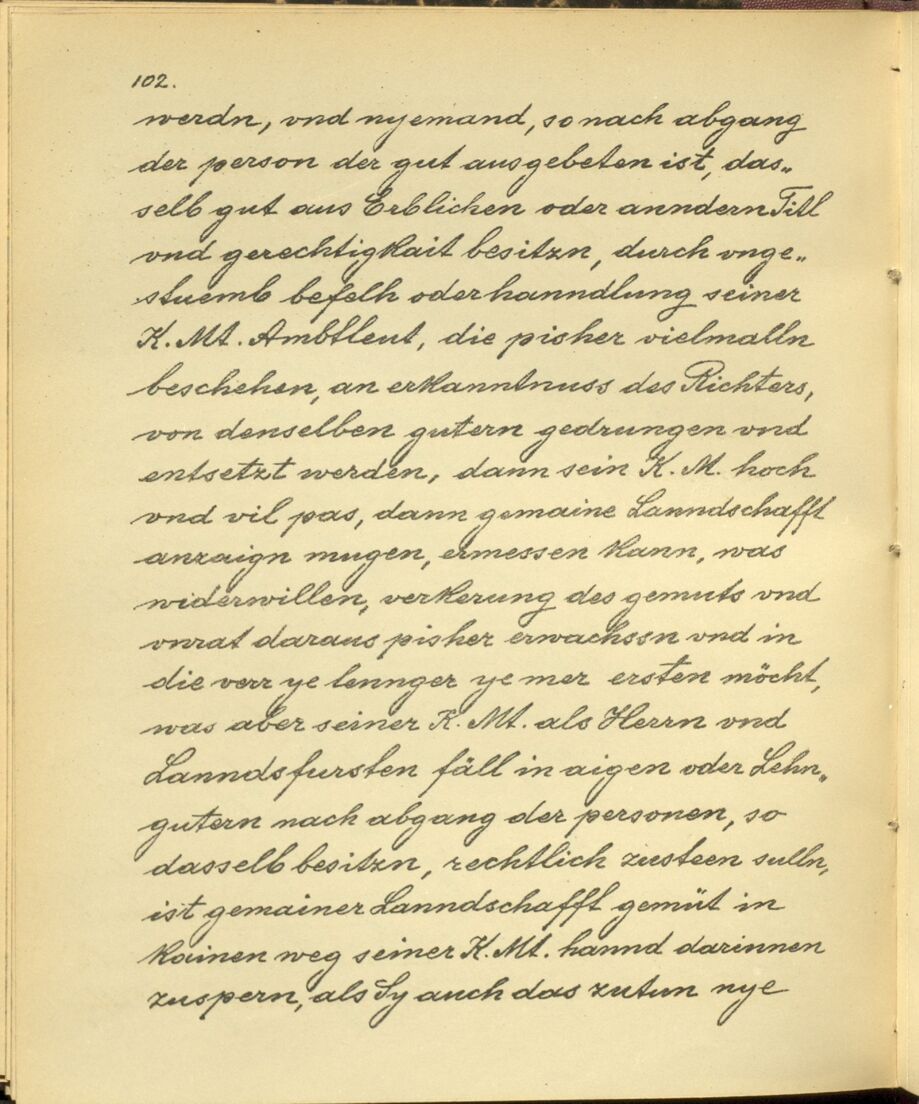 102.
werdn, vnd nyemand, so nach abgang
der person der gut ausgebeten ist, das„
selb gut aus Erblichen oder anndern Titl
vnd gerechtigkait besitzn, durch vnge„
stuemb befelh oder hanndlung seiner
K. Mt. Ambtleut, die pisher vielmalln
beschehen, an erkanntnuss des Richters,
von denselben gutern gedrungen vnd
entsetzt werden, dann sein K. M. hoch
vnd vil pas, dann gemaine Lanndschafft
anzaign mugen, ermessen kann, was
widerwillen, verkerung des gemuts vnd
vnrat daraus pisher erwachssn vnd in
die verr ye lennger ye mer ersten möcht,
was aber seiner K. Mt. als Herrn vnd
Lanndsfursten fäll in aigen oder Lehn„
gutern nach abgang der personen, so
dasselb besitzn, rechtlich zusteen sulln,
ist gemainer Lanndschafft gemüt in
kainen weg seiner K. Mt. hannd darinnen
zuspern, als Sy auch das zutun nye